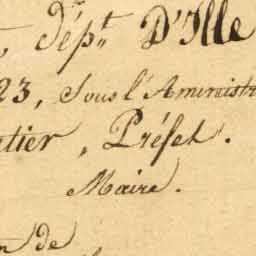 , dép.t D'Ille
23, Sous l'Aministr
tier, Préfet.
Maire.
n de